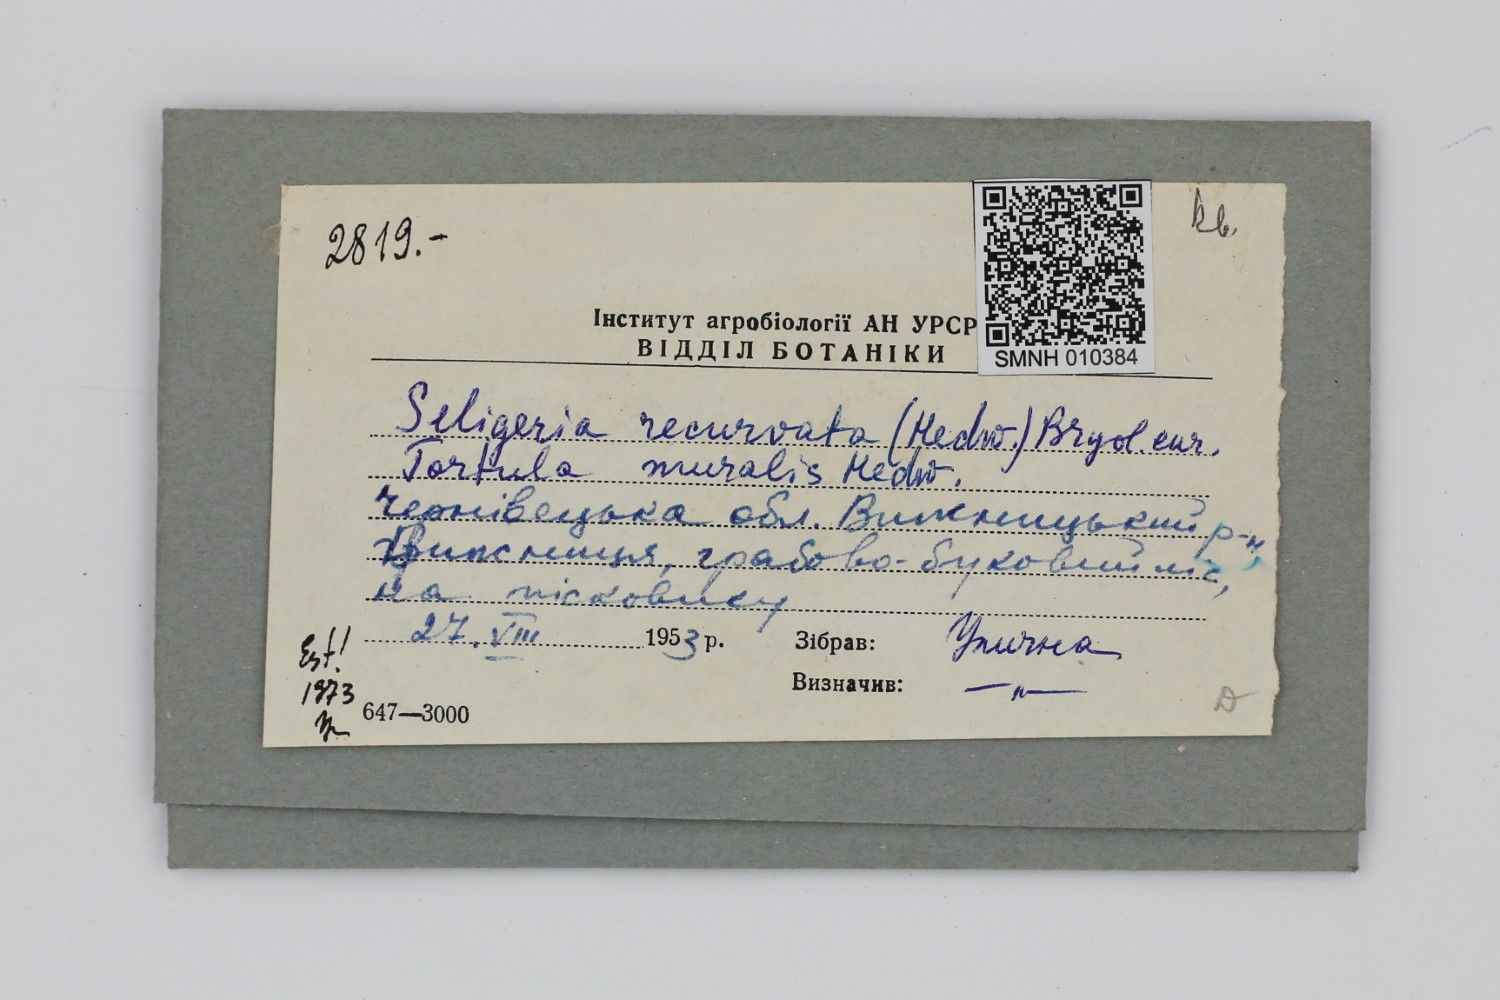 2819.-
кв.
Інститут агробіології АН УРСР
ВІДДІЛ БОТАНІКИ
SMNH 010384
Seligeria recurvata (Hedw.) Bryol. eur.
Tortula muralis Hedw.
Чернівецька обл. Вижницький р-н,
Вижниця, грабово-буковий ліс,
на пісковику
27. VIII 1953 р. Зібрав: Улична
Визначив: —〃—
Est!
1973
647—3000
D